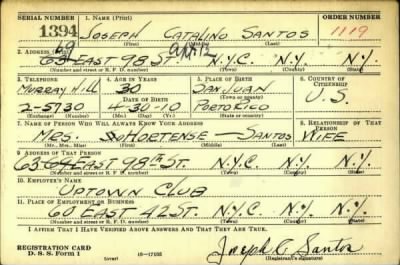 SERIAL NUMBER 1. NAME (Print) ORDER NUMBER
1394 JOSEPH CATALINO SANTOS 1119
(First) (Middle) (Last)
2. ADDRESS (Print)
69 apt 12
63 EAST 98 ST. N.Y.C. N.Y. N.Y.
(Number and street or R. F. D. number) (Town) (County) (State)
3. TELEPHONE 4. AGE IN YEARS 5. PLACE OF BIRTH 6. COUNTRY OF CITIZENSHIP
MURRAY HILL 30 SAN JUAN
(Town or county)
DATE OF BIRTH U.S.
2-5730 4-30-10 PORTO RICO
(Exchange) (Number) (Mo.) (Day) (Yr.) (State or country)
7. NAME OF PERSON WHO WILL ALWAYS KNOW YOUR ADDRESS 8. RELATIONSHIP OF THAT PERSON
MRS. HORTENSE — SANTOS WIFE
(Mr., Mrs., Miss) (First) (Middle) (Last)
9. ADDRESS OF THAT PERSON
63 EAST 98TH ST. N.Y.C. N.Y. N.Y.
(Number and street or R. F. D. number) (Town) (County) (State)
10. EMPLOYER'S NAME
UPTOWN CLUB
11. PLACE OF EMPLOYMENT OR BUSINESS
60 EAST 42 ST. N.Y.C. N.Y. N.Y.
(Number and street or R. F. D. number) (Town) (County) (State)
I AFFIRM THAT I HAVE VERIFIED ABOVE ANSWERS AND THAT THEY ARE TRUE.
REGISTRATION CARD
D. S. S. Form 1 (over) 16—17105 Joseph C. Santos
(Registrant's signature)